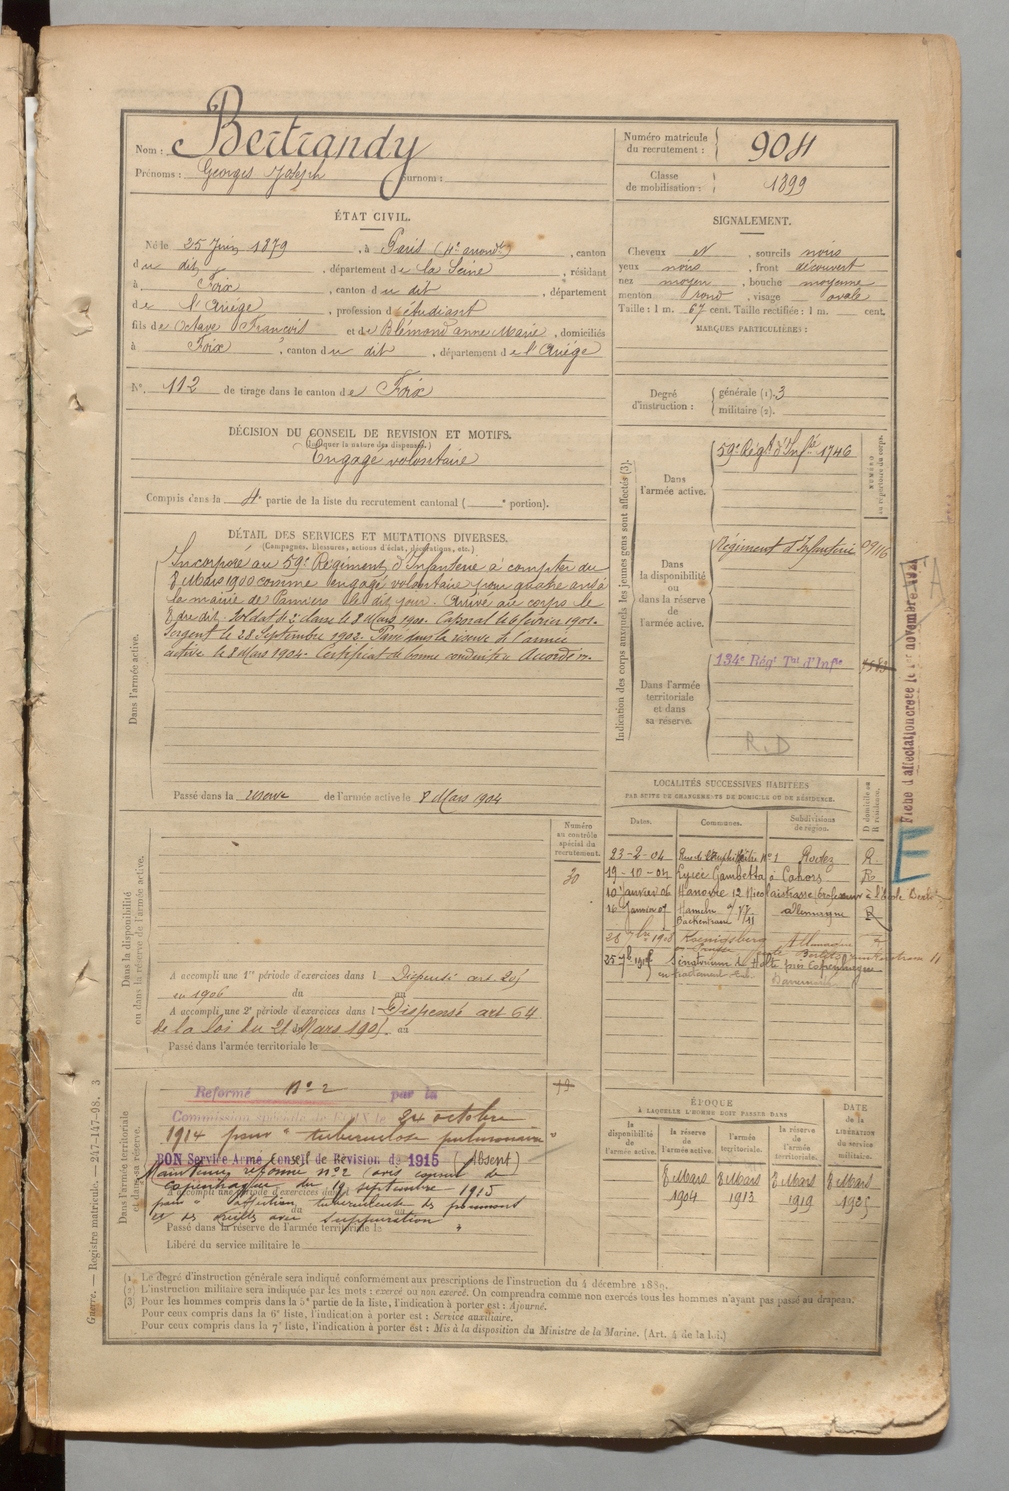 Nom : Bertrandy
Prénoms : Georges Joseph Surnom :
Numéro matricule du recrutement : 904
Classe de mobilisation : 1899
ÉTAT CIVIL.
Né le 25 Juin 1879, à Paris (4e arrondt), canton
du dit, département de la Seine, résidant
à Foix, canton du dit, département
de l'Ariège, profession d'étudiant
fils de Octave François et de Blémond anne Marie, domiciliés
à Foix, canton du dit, département de l'Ariége
N°. 112 de tirage dans le canton de Foix
SIGNALEMENT.
Cheveux N, sourcils noirs
yeux noirs, front découvert
nez moyen, bouche moyenne
menton rond, visage ovale
Taille : 1 m. 67 cent. Taille rectifiée : 1 m. cent.
MARQUES PARTICULIÈRES :
Degré d'instruction : générale (1). 3
militaire (2).
DÉCISION DU CONSEIL DE REVISION ET MOTIFS.
(Indiquer la nature des dispenses.)
Engagé volontaire
Compris dans la 4e partie de la liste du recrutement cantonal ( e portion).
DÉTAIL DES SERVICES ET MUTATIONS DIVERSES.
(Campagnes, blessures, actions d'éclat, décorations, etc.)
Dans l'armée active.
Incorporé au 59e Régiment d'Infanterie à compter du
8 Mars 1900 comme engagé volontaire pour quatre ans à
la mairie de Pamiers le dit jour. Arrivé au corps le
8 du dit. Soldat de 2e classe le 8 Mars 1900. Caporal le 6 février 1901.
Sergent le 28 Septembre 1902. Passé dans la réserve de l'armée
active le 8 Mars 1904. Certificat de bonne conduite Accordé
Passé dans la réserve de l'armée active le 8 Mars 1904
Indication des corps auxquels les jeunes gens sont affectés (3).
NUMÉRO au répertoire du corps.
Dans l'armée active.
59e Régt d'Infie 1746
Dans la disponibilité ou dans la réserve de l'armée active.
Régiment d'Infanterie 09116
Dans l'armée territoriale et dans sa réserve.
134e Régt Tal d'Infie
R.D
Fiche d'affectation créée le 1er novembre
E
LOCALITÉS SUCCESSIVES HABITÉES
PAR SUITE DE CHANGEMENTS DE DOMICILE OU DE RÉSIDENCE.
D domicile ou R résidence.
Dates. Communes. Subdivisions de région.
23-2-04 Rue de N° 1 Rodez R
19-10-04 Lycée Gambetta à Cahors R
10 Janvier 06 Hanovre 12 Nicolaistrasse (professeur à l'école Berlitz
16 Janvier 07 Hameln allemagne R
Koenigsberg Allemagne
Sanatorium de près Copenhague
Danemark
Dans la disponibilité ou dans la réserve de l'armée active.
Numéro au contrôle spécial du recrutement.
30
A accompli une 1re période d'exercices dans l Dispensé art
en 1906 du au
A accompli une 2e période d'exercices dans l Dispensé art 64
de la loi du 21 Mars 1905. au
Passé dans l'armée territoriale le
Dans l'armée territoriale et dans sa réserve.
Réformé N° 2 par la
Commission spéciale de FOIX le 24 octobre
1914 pour "tuberculose pulmonaire"
BON Service Armé Conseil de Révision de 1915 (Absent)
Maintenu réformé n°2 (avis
Copenhague du 19 septembre 1915
A accompli une période d'exercices dans l
pour "affection tuberculeuse des poumons
et des oreilles avec suppuration"
Passé dans la réserve de l'armée territoriale le
Libéré du service militaire le
ÉPOQUE
À LAQUELLE L'HOMME DOIT PASSER DANS
la disponibilité de l'armée active.
la réserve de l'armée active.
l'armée territoriale.
la réserve de l'armée territoriale.
DATE de la LIBÉRATION du service militaire.
8 Mars 1904 8 Mars 1913 8 Mars 1919 8 Mars 1925
(1) Le degré d'instruction générale sera indiqué conformément aux prescriptions de l'instruction du 4 décembre 1889.
(2) L'instruction militaire sera indiquée par les mots : exercé ou non exercé. On comprendra comme non exercés tous les hommes n'ayant pas passé au drapeau.
(3) Pour les hommes compris dans la 5e partie de la liste, l'indication à porter est : Ajourné.
Pour ceux compris dans la 6e liste, l'indication à porter est : Service auxiliaire.
Pour ceux compris dans la 7e liste, l'indication à porter est : Mis à la disposition du Ministre de la Marine. (Art. 4 de la loi.)
Guerre. — Registre matricule. — 247-147-98. 3